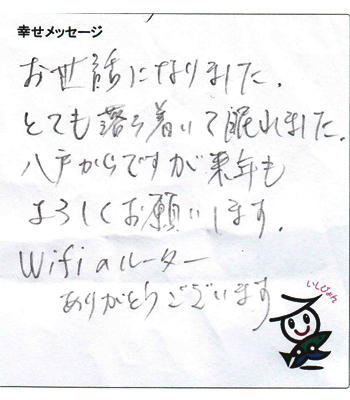 幸せメッセージ
お世話になりました.
とても落ち着いて眠れました.
八戸からですが来年も
よろしくお願いします.
Wifi のルーター
ありがとうございます
いしぴょん